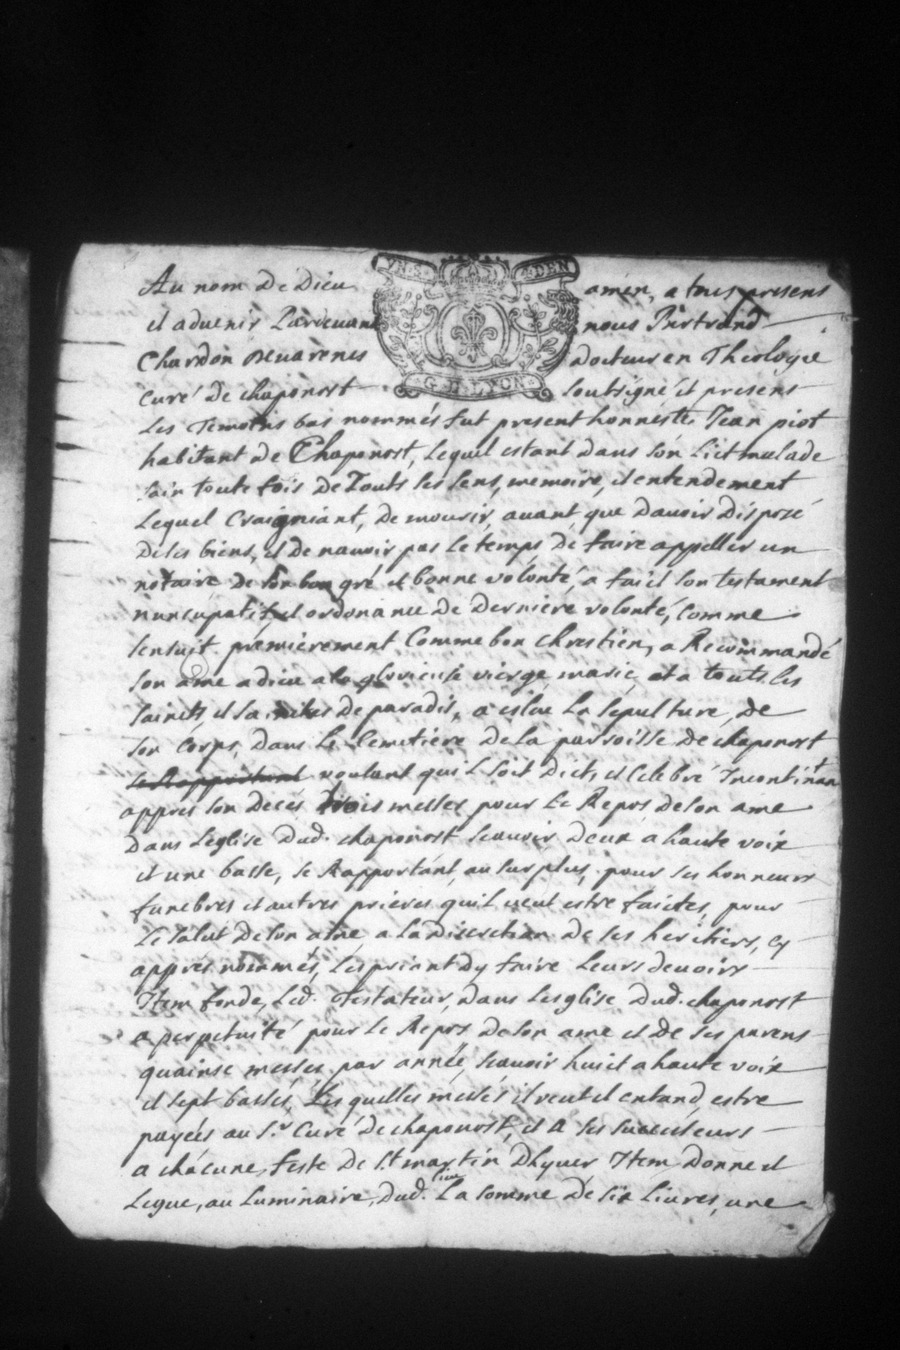 VN.S. DEN
G. H. LYON
Au nom De Dieu amen, a tous presens
et aduenir Pardeuant nous Bertrand
Chardon Deuarenes Docteur en Theologie
Curé de chaponost soubsigné et present
Les Temoins bas nommés fut present honneste Jean piot
habitant de Chaponost, Lequel estant dans son Lict malade
sain toute fois de Touts ses sens, memoire, et entendement
Lequel Craigniant, de mourir, auant que dauoir Disposé
De ses biens, et de nauoir pas Le temps de faire appeller un
notaire de son bon gré et bonne volonté, a faict son testament
nuncupatif et ordonance de derniere volonté, Comme
sensuit premierement Comme bon Chrestien, a Recommandé
son ame a dieu a la glorieuse vierge marie, et a touts les
saincts, et saintes de paradis, a eslue La sepulture, de
son Corps, Dans Le Cemetiere de La parroisse de chaponost
se Rapportant voulant quil soit dict, et Celebré Incontinant
appres son decés trois messes pour Le Repos de son ame
Dans Leglise Dud. chaponost scauoir Deux a haute voix
et une basse, se Rapportant, au surplus, pour ses honneurs
funebres et autres prieres quil veut estre faictes, pour
Le salut de son ame a la Discretion de ses heritiers, cy
appres nommés, Les priant dy faire Leurs deuoirs
Item fonde, Led. Testateur, dans Lesglise Dud. chaponost
a perpetuité pour Le Repos de son ame et de ses parens
quainse messes par année, scauoir huict a haute voix
et sept basses, Les quelles messes il veut et entand estre
payées au Sr Curé de chaponost, et a ses successeurs
a chacune feste de St martin Dhyuer Item donne et
Legue, au Luminaire, Dud. lieu La somme de six Liures, une